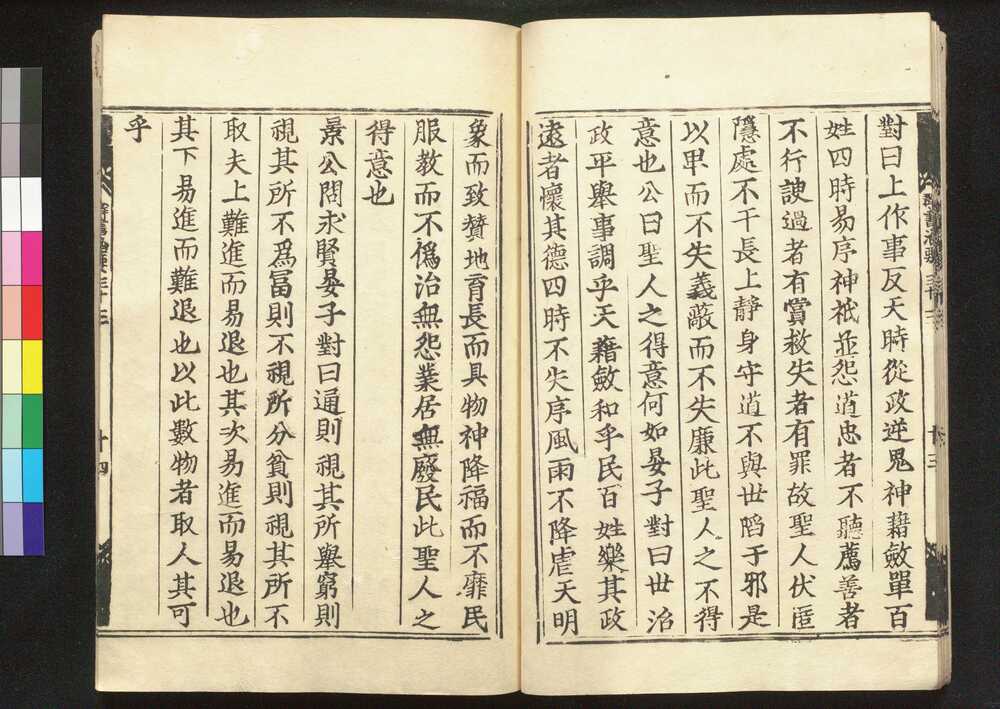 對曰上作事反天時從政逆鬼神藉斂單百
姓四時易序神祇並怨道忠者不聽薦善者
不行諛過者有賞救失者有罪故聖人伏匿
隱處不干長上靜身守道不與世陷于邪是
以卑而不失義蔽而不失廉此聖人之不得
意也公曰聖人之得意何如晏子對曰世治
政平舉事調乎天藉斂和乎民百姓樂其政
遠者懷其德四時不失序風雨不降虐天明
象而致贊地育長而具物神降福而不靡民
服教而不僞治無怨業居無廢民此聖人之
得意也
景公問求賢晏子對曰通則視其所舉窮則
視其所不爲富則不視所分貧則視其所不
取夫上難進而易退也其次易進而易退也
其下易進而難退也以此數物者取人其可
乎
群書治要三十三
十四
群書治要三十三
十三